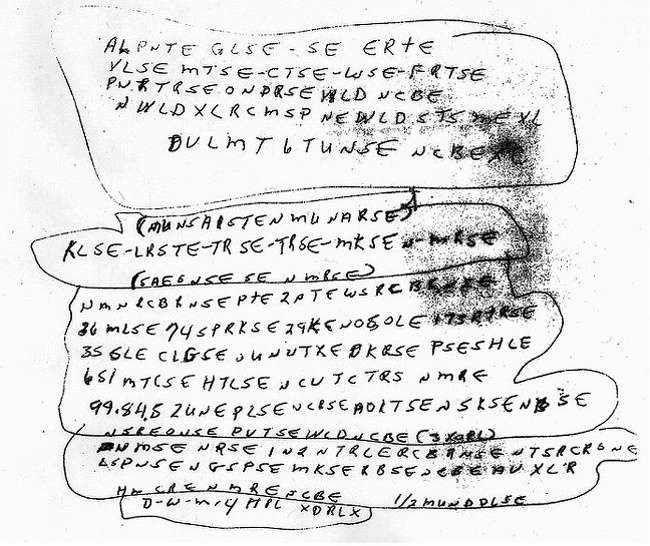 ALPNTE GLSE-SE ERTE
VLSE MTSE-CTSE-WSE-FRTSE
PNRTRSEONDRSEWLD NCBE
NWLDXLRCMSP NEWLDSTS MEXL
DULMT 6 TUNSE NCBEX
(MUNSARSTENMUNARSE)
KLSE-LRSTE-TRSE-TRSE-MKSEN-MRSE
(SAEGNSESE NMRSE)
NMNRCBRNSEPTE2NTEWSRCBRNSE
36MLSE74SPRKSE29KENOSOLE173RTRSE
35GLE CLGSE UNUTXEDKRSE PSESHLE
651MTCSE HTLSE NCUTCTRS NMRE
99.84.5 2UNEPLSENCRSEAOLTSENSKSENBSE
NSREONSE PUTSEWLDNCBE (3XORL)
NMSE NRSE IN2NTRLERCBRNSENTSRCRONE
LSPNSENGSPSE MKSERBSENCBEAUXLR
HM CRE NMRE NCBE 1/2 MUNDDLSE
D-W-M-4 MPL XDRLX